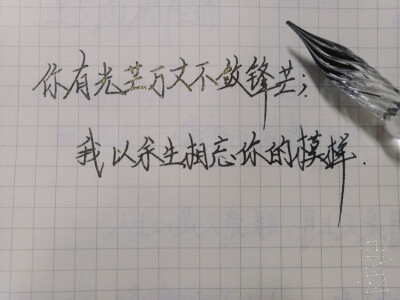 你有光芒万丈不敛锋芒;
我以余生相忘你的模样.